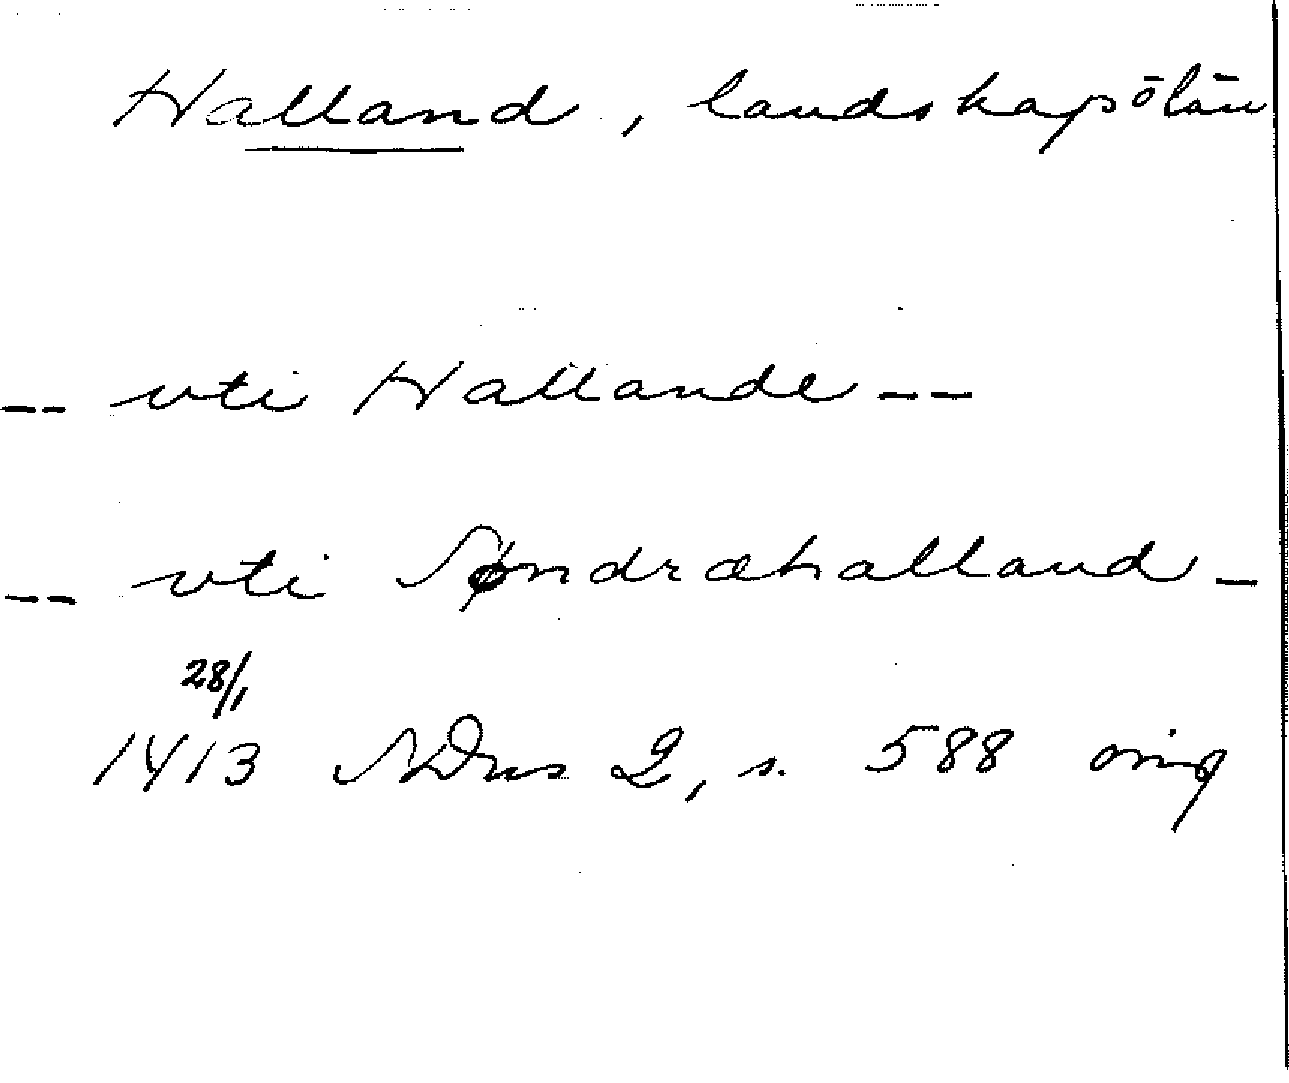 Halland, landskap o län
-- vti Hallande --
-- vti Søndræhalland -
28/1
1413 SDns 2, s. 588 orig